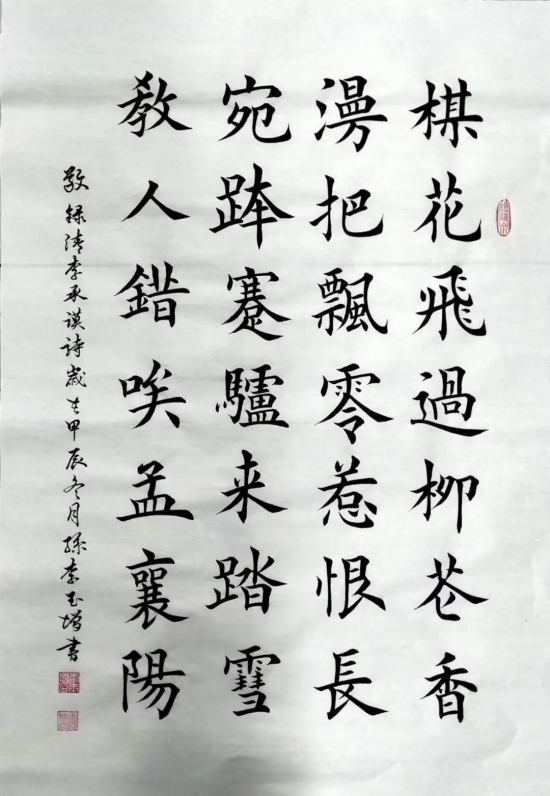 棋花飛過柳芲香
漫把飄零惹恨長
宛踤蹇驢来踏雪
教人錯唉孟襄陽
敬録清李承谟詩歲在甲辰冬月孫李玉增書